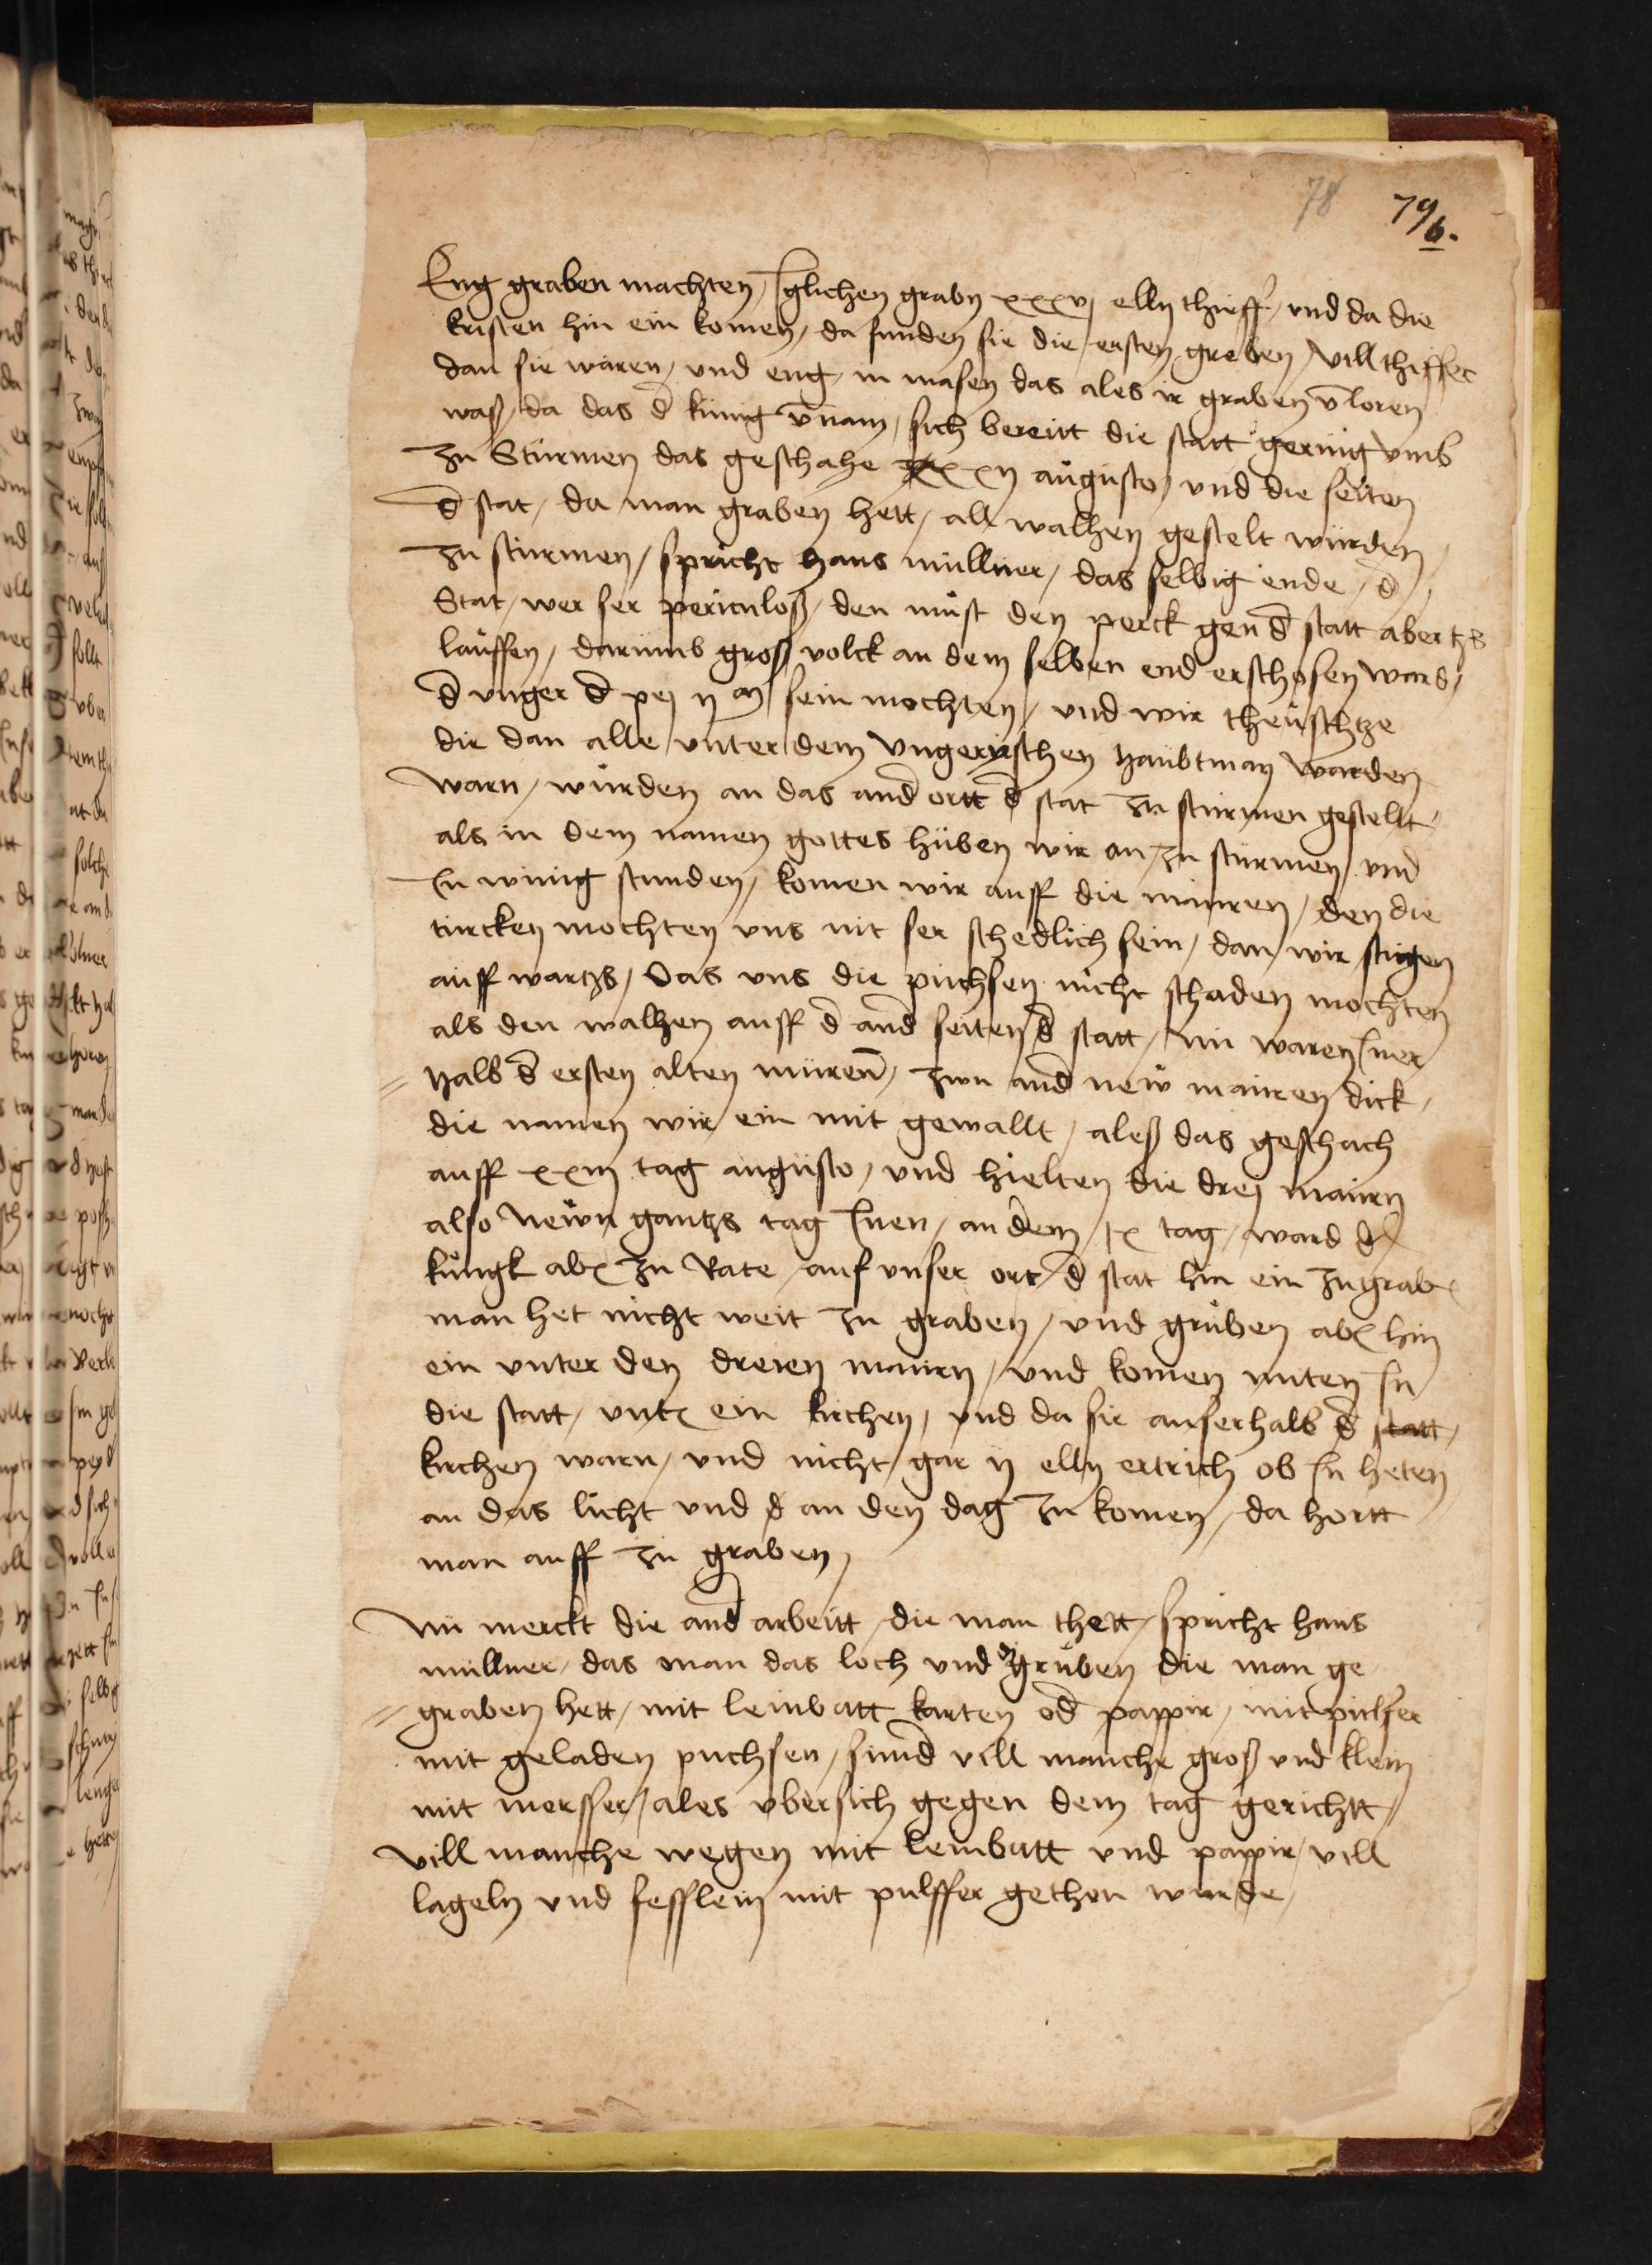 78 79b.
Eng graben machten / Iglichen grabn xxxvj elln thieff / vnd da die
kristen hin ein komen / da funden sie die ersten greben / vill thiffer
dan sie waren / vnd eng / in masen das ales ir graben v̄loren
waß / da das d̄ künig v̄nam / sich bereitt die statt gering vmb
zu Stürmen das geschahe xxij augusto / vnd die seiten
d̄ stat / da man graben hett / all walhen gestelt würden /
zu stürmen / spricht Hans müllner / das selbig ende / d̄
Stat / wer ser periculoß / den must den perck gen d̄ statt abertzs
lauffen / darumb groß volck an dem selben end erschosen ward /
d̄ vnger d̄ pej ij m sein mochten / vnd wir theuschtze
die dan alle vnter dem vngerischen Haubtman warden
warn / würden an das and̄ ortt d̄ stat zu stürmen gestellt /
als in dem namen gottes hüben wir an / zu stürmen / vnd
In winig stunden / komen wir auff die mauren / den die
türcken mochten vns nit ser schedlich sein / dan wir stigen
auff wartzs / Das vns die püchsen nicht schaden mochten
als den walhen auff d̄ and̄ seiten d̄ statt / nü waren Iner
halb d̄ ersten alten müren̄ / zwu and̄ new mauren dick /
die namen wir ein mit gewallt / aleß das geschach
auff xxiij tag augusto / vnd hielten die drej maurn
also newn gantzs tag Inen / an dem ix tag / ward d̄
küngk aber zu Rate / auf vnser ort / d̄ stat hin ein zu graben
man het nicht weit zu graben / vnd gruben aber hin
ein vnter den dreien maurn / vnd komen miten In
die statt / vnter ein kirchen / vnd da sie auserhalb d̄ statt /
kirchen warn / vnd nicht gar ij elln ertrich ob In heten
an das licht vnd d an den dag zu komen / da hortt
man auff zu graben /
Nü merckt die and̄ arbeitt / die man thett / spricht hans
müllner / das man das loch vnd gruben die man ge
graben hett / mit leinbatt karten od̄ pappir / mit pulfer
mit geladen puchsen / sünd̄ vill manche groß vnd klein
mit morsser / ales vbersich gegen dem tag gerichtt /
vill manche wegen mit leinbatt vnd pappir / vill
lageln vnd fesslein mit pulffer gethon wurde /